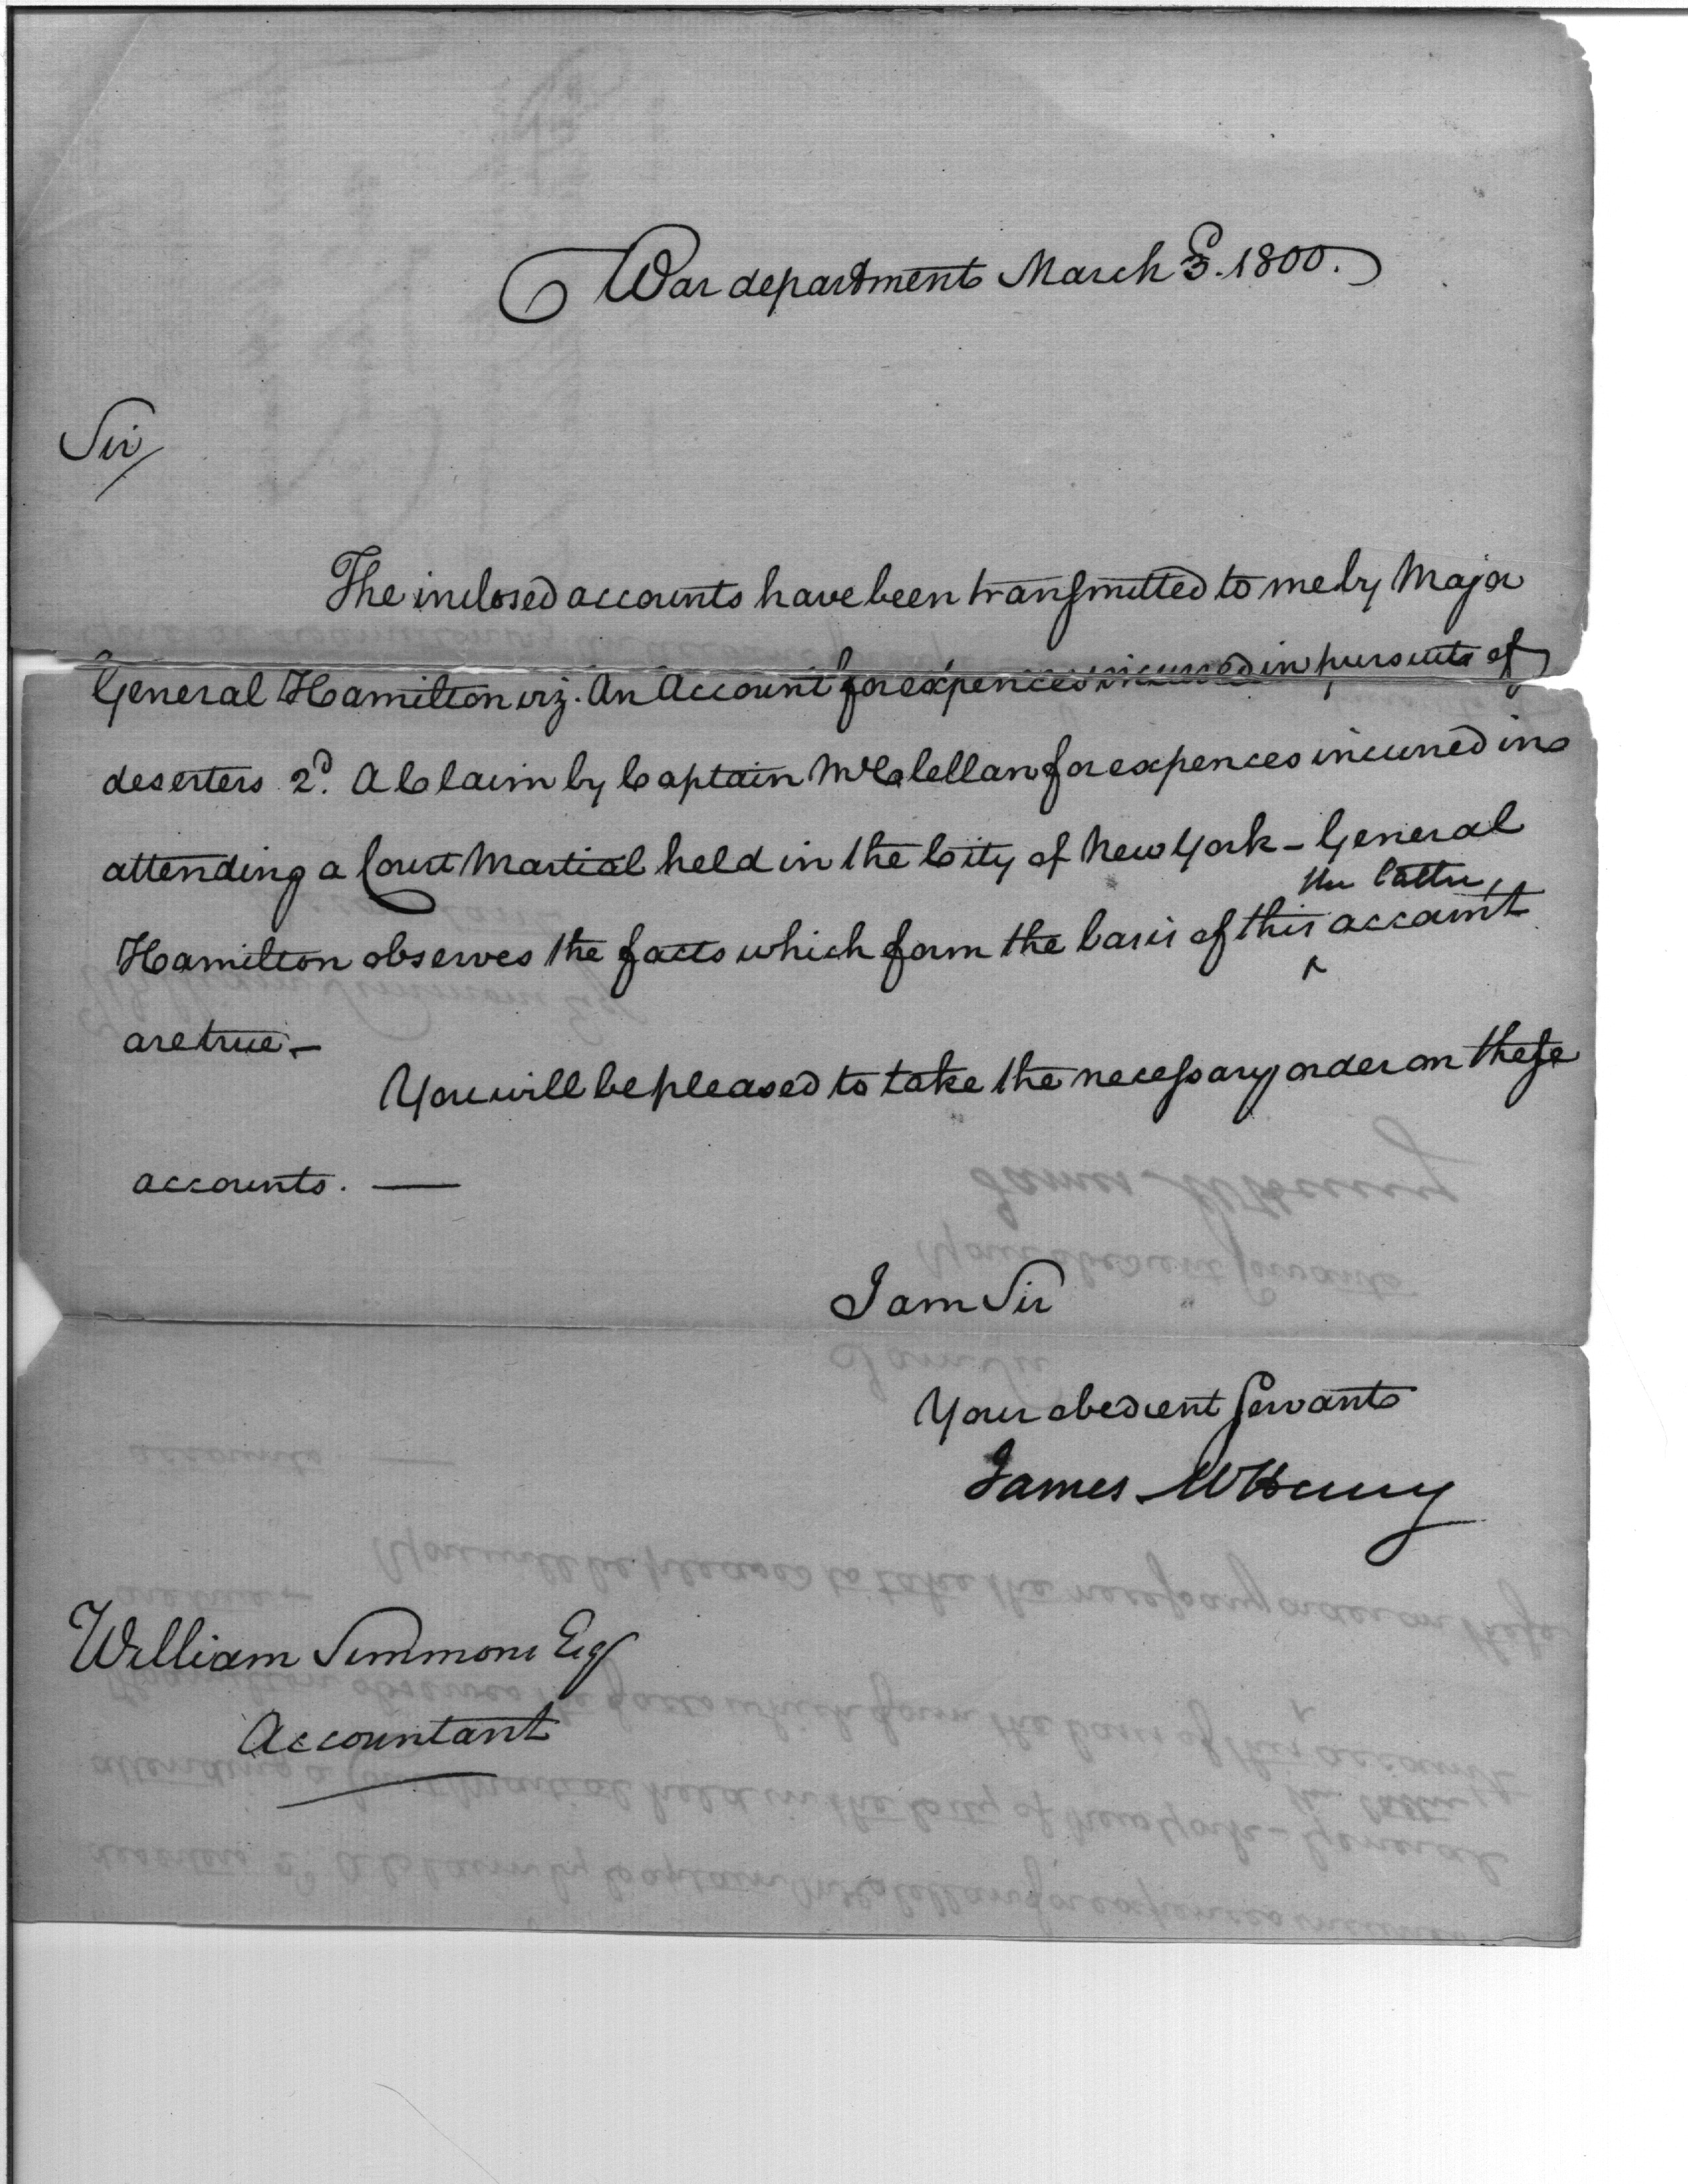 War department March 3. 1800.
Sir/
The inclosed accounts have been transmitted to me by Major
General Hamilton viz. An Account for expences incurred in pursuits of
deserters 2d. A Claim by Captain McClellan for expences incurred in
attending a Court Martial held in the City of New York – General
the latter,
Hamilton observes the facts which form the basis of this ^ account
are true –
You will be pleased to take the necessary order on these
accounts. —
I am Sir
Your obedient Servant
James McHenry
William Simmons Esq
Accountant